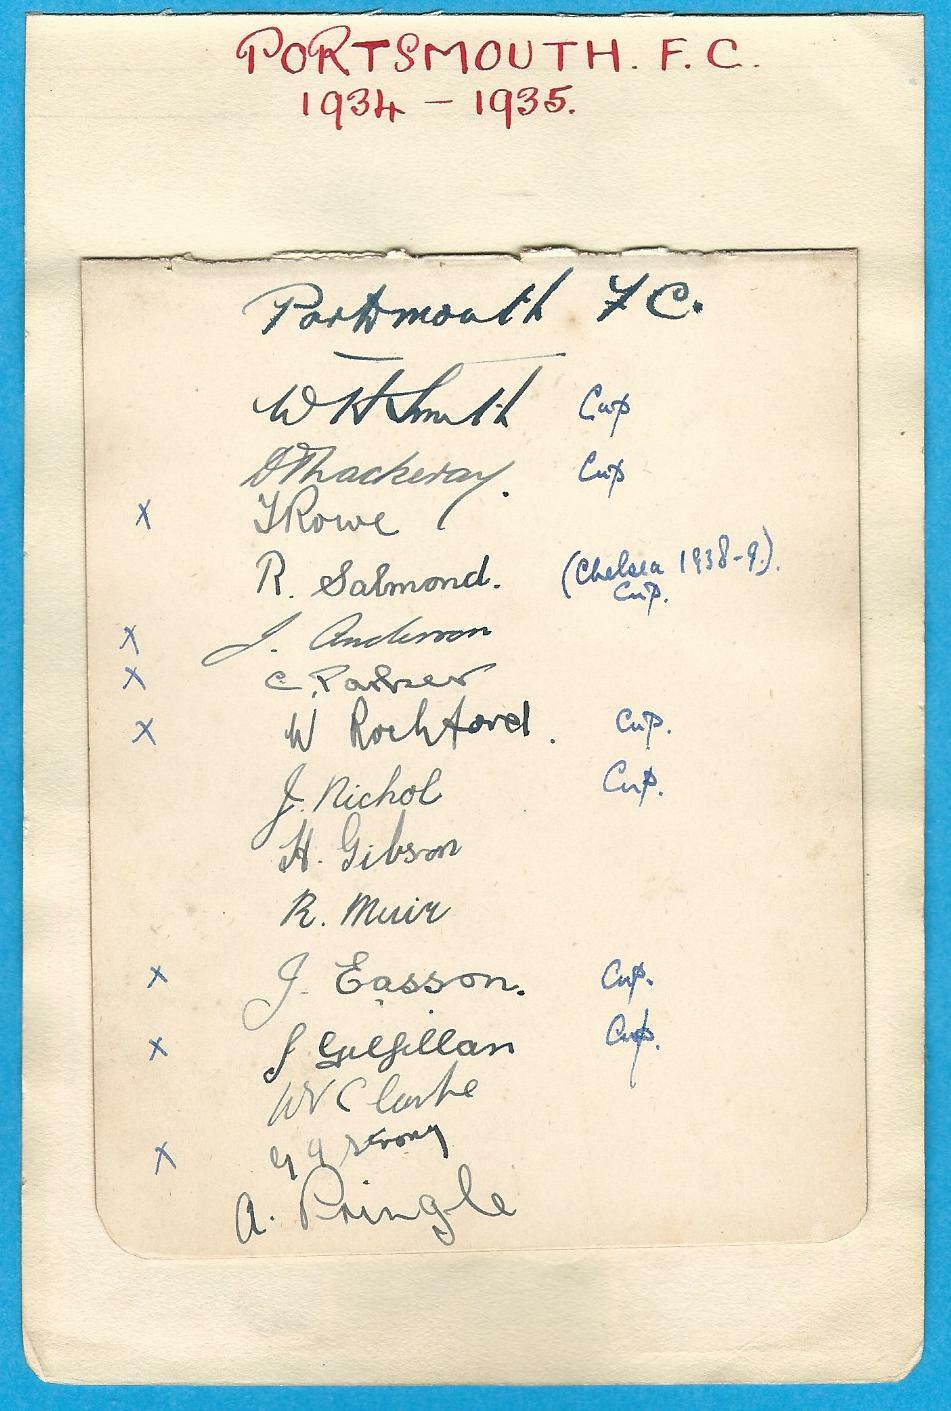 PORTSMOUTH. F. C.
1934 - 1935.
Portsmouth F C.
W H Smith Cup
D Thackeray. Cup
X J Rowe
R. Salmond. (Chelsea 1938-9.).
Cup.
X J. Anderson
X C. Parker
X W Rochford. Cup.
J. Nichol Cup.
H. Gibson
R. Muir
X J. Easson. Cup.
X J Gilfillan Cup.
W V Clarke
X G J Strong
A. Pringle